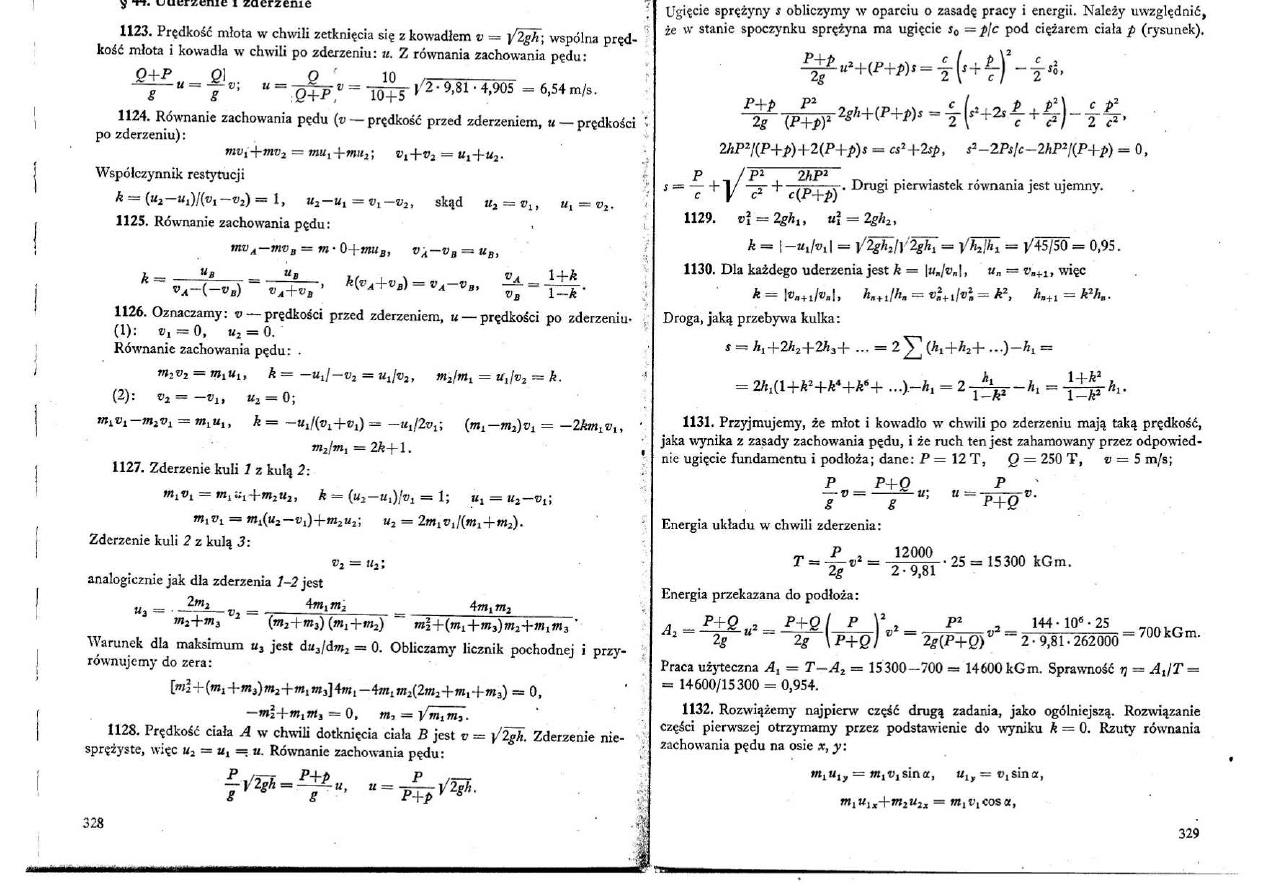 § 44. Uderzenie i zderzenie
1123. Prędkość młota w chwili zetknięcia się z kowadłem v = √2gh; wspólna pręd-
kość młota i kowadła w chwili po zderzeniu: u. Z równania zachowania pędu:
(Q+P)/g u = Q/g v; u = Q/(Q+P) v = 10/(10+5) √2·9,81·4,905 = 6,54 m/s.
1124. Równanie zachowania pędu (v — prędkość przed zderzeniem, u — prędkości
po zderzeniu):
mv₁+mv₂ = mu₁+mu₂; v₁+v₂ = u₁+u₂.
Współczynnik restytucji
k = (u₂−u₁)/(v₁−v₂) = 1, u₂−u₁ = v₁−v₂, skąd u₂ = v₁, u₁ = v₂.
1125. Równanie zachowania pędu:
mv_A−mv_B = m·0+mu_B, v_A−v_B = u_B,
k = u_B/(v_A−(−v_B)) = u_B/(v_A+v_B), k(v_A+v_B) = v_A−v_B, v_A/v_B = (1+k)/(1−k).
1126. Oznaczamy: v — prędkości przed zderzeniem, u — prędkości po zderzeniu.
(1): v₁ = 0, u₂ = 0.
Równanie zachowania pędu:
m₂v₂ = m₁u₁, k = −u₁/−v₂ = u₁/v₂, m₂/m₁ = u₁/v₂ = k.
(2): v₂ = −v₁, u₂ = 0;
m₁v₁−m₂v₁ = m₁u₁, k = −u₁/(v₁+v₁) = −u₁/2v₁; (m₁−m₂)v₁ = −2km₁v₁,
m₂/m₁ = 2k+1.
1127. Zderzenie kuli 1 z kulą 2:
m₁v₁ = m₁u₁+m₂u₂, k = (u₂−u₁)/v₁ = 1; u₁ = u₂−v₁;
m₁v₁ = m₁(u₂−v₁)+m₂u₂; u₂ = 2m₁v₁/(m₁+m₂).
Zderzenie kuli 2 z kulą 3:
v₂ = u₂;
analogicznie jak dla zderzenia 1–2 jest
u₃ = 2m₂/(m₂+m₃) v₂ = 4m₁m₂/((m₂+m₃)(m₁+m₂)) = 4m₁m₂/(m₂²+(m₁+m₃)m₂+m₁m₃).
Warunek dla maksimum u₃ jest du₃/dm₂ = 0. Obliczamy licznik pochodnej i przy-
równujemy do zera:
[m₂²+(m₁+m₃)m₂+m₁m₃]4m₁−4m₁m₂(2m₂+m₁+m₃) = 0,
−m₂²+m₁m₃ = 0, m₂ = √m₁m₃.
1128. Prędkość ciała A w chwili dotknięcia ciała B jest v = √2gh. Zderzenie nie-
sprężyste, więc u₂ = u₁ = u. Równanie zachowania pędu:
P/g √2gh = (P+p)/g u, u = P/(P+p) √2gh.
328
Ugięcie sprężyny s obliczymy w oparciu o zasadę pracy i energii. Należy uwzględnić,
że w stanie spoczynku sprężyna ma ugięcie s₀ = p/c pod ciężarem ciała p (rysunek).
(P+p)/2g u²+(P+p)s = c/2 (s+p/c)² − c/2 s₀²,
(P+p)/2g P²/(P+p)² 2gh+(P+p)s = c/2 (s²+2s p/c + p²/c²) − c/2 p²/c²,
2hP²/(P+p)+2(P+p)s = cs²+2sp, s²−2Ps/c−2hP²/(P+p) = 0,
s = P/c + √(P²/c² + 2hP²/c(P+p)). Drugi pierwiastek równania jest ujemny.
1129. v₁² = 2gh₁, u₁² = 2gh₂,
k = |−u₁/v₁| = √2gh₂/√2gh₁ = √h₂/h₁ = √45/50 = 0,95.
1130. Dla każdego uderzenia jest k = |uₙ/vₙ|, uₙ = vₙ₊₁, więc
k = |vₙ₊₁/vₙ|, hₙ₊₁/hₙ = v²ₙ₊₁/v²ₙ = k², hₙ₊₁ = k²hₙ.
Droga, jaką przebywa kulka:
s = h₁+2h₂+2h₃+ ... = 2 ∑ (h₁+h₂+ ...)−h₁ =
= 2h₁(1+k²+k⁴+k⁶+ ...)−h₁ = 2 h₁/(1−k²) −h₁ = (1+k²)/(1−k²) h₁.
1131. Przyjmujemy, że młot i kowadło w chwili po zderzeniu mają taką prędkość,
jaka wynika z zasady zachowania pędu, i że ruch ten jest zahamowany przez odpowied-
nie ugięcie fundamentu i podłoża; dane: P = 12 T, Q = 250 T, v = 5 m/s;
P/g v = (P+Q)/g u; u = P/(P+Q) v.
Energia układu w chwili zderzenia:
T = P/2g v² = 12000/(2·9,81) · 25 = 15300 kGm.
Energia przekazana do podłoża:
A₂ = (P+Q)/2g u² = (P+Q)/2g (P/(P+Q))² v² = P²/(2g(P+Q)) v² = 144·10⁶·25/(2·9,81·262000) = 700 kGm.
Praca użyteczna A₁ = T−A₂ = 15300−700 = 14600 kGm. Sprawność η = A₁/T =
= 14600/15300 = 0,954.
1132. Rozwiążemy najpierw część drugą zadania, jako ogólniejszą. Rozwiązanie
części pierwszej otrzymamy przez podstawienie do wyniku k = 0. Rzuty równania
zachowania pędu na osie x, y:
m₁u₁y = m₁v₁ sin α, u₁y = v₁ sin α,
m₁u₁x+m₂u₂x = m₁v₁ cos α,
329